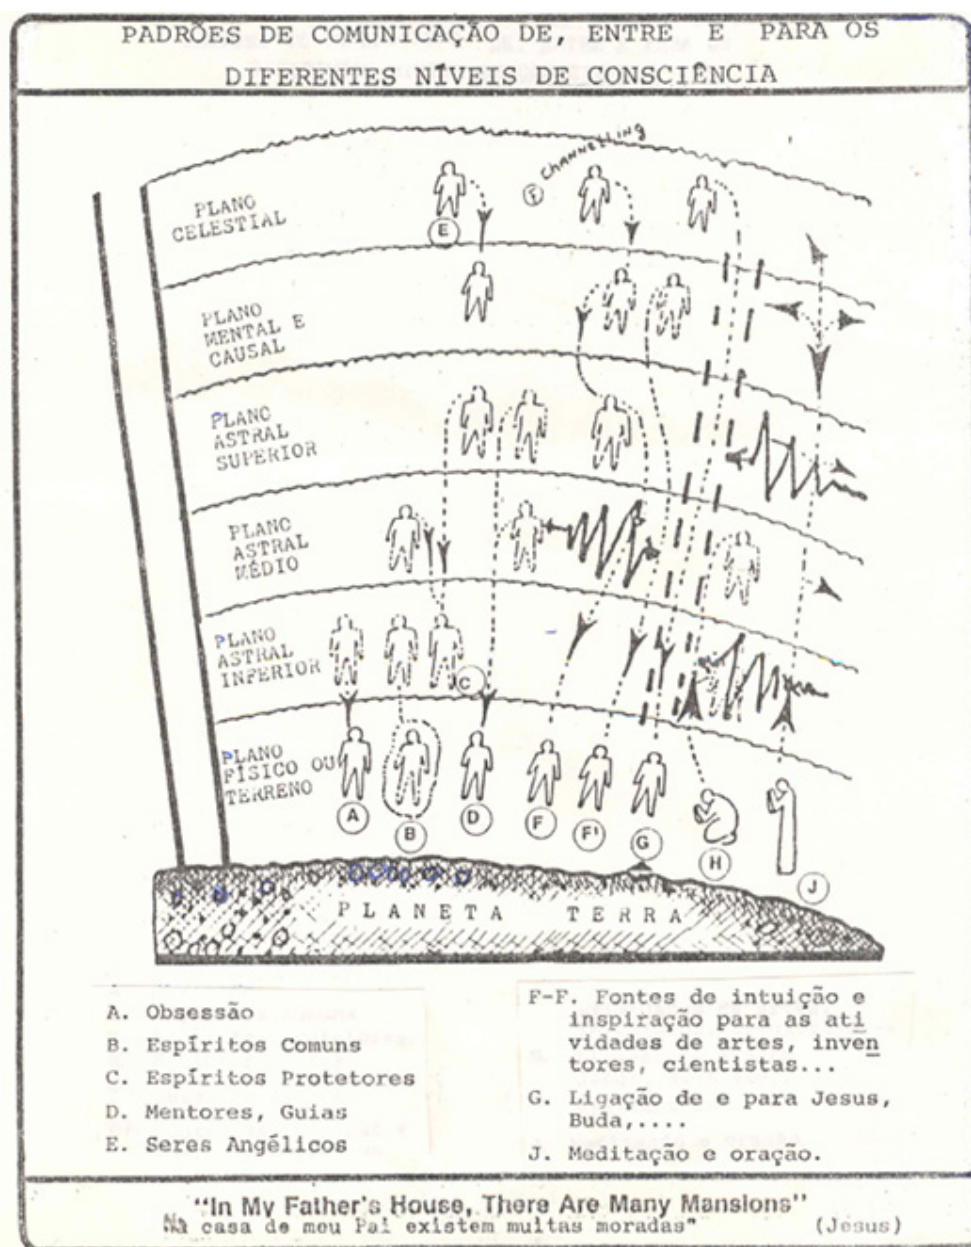 PADRÕES DE COMUNICAÇÃO DE, ENTRE E PARA OS
DIFERENTES NÍVEIS DE CONSCIÊNCIA
CHANNELLING
F
PLANO
CELESTIAL
E
PLANO
MENTAL E
CAUSAL
PLANO
ASTRAL
SUPERIOR
PLANO
ASTRAL
MÉDIO
PLANO
ASTRAL
INFERIOR
C
PLANO
FÍSICO OU
TERRENO
A
B
D
F
F'
G
H
J
PLANETA TERRA
A. Obsessão
B. Espíritos Comuns
C. Espíritos Protetores
D. Mentores, Guias
E. Seres Angélicos
F-F. Fontes de intuição e
inspiração para as ati
vidades de artes, inven
tores, cientistas...
G. Ligação de e para Jesus,
Buda,....
J. Meditação e oração.
"In My Father's House, There Are Many Mansions"
Na casa de meu Pai existem muitas moradas" (Jesus)